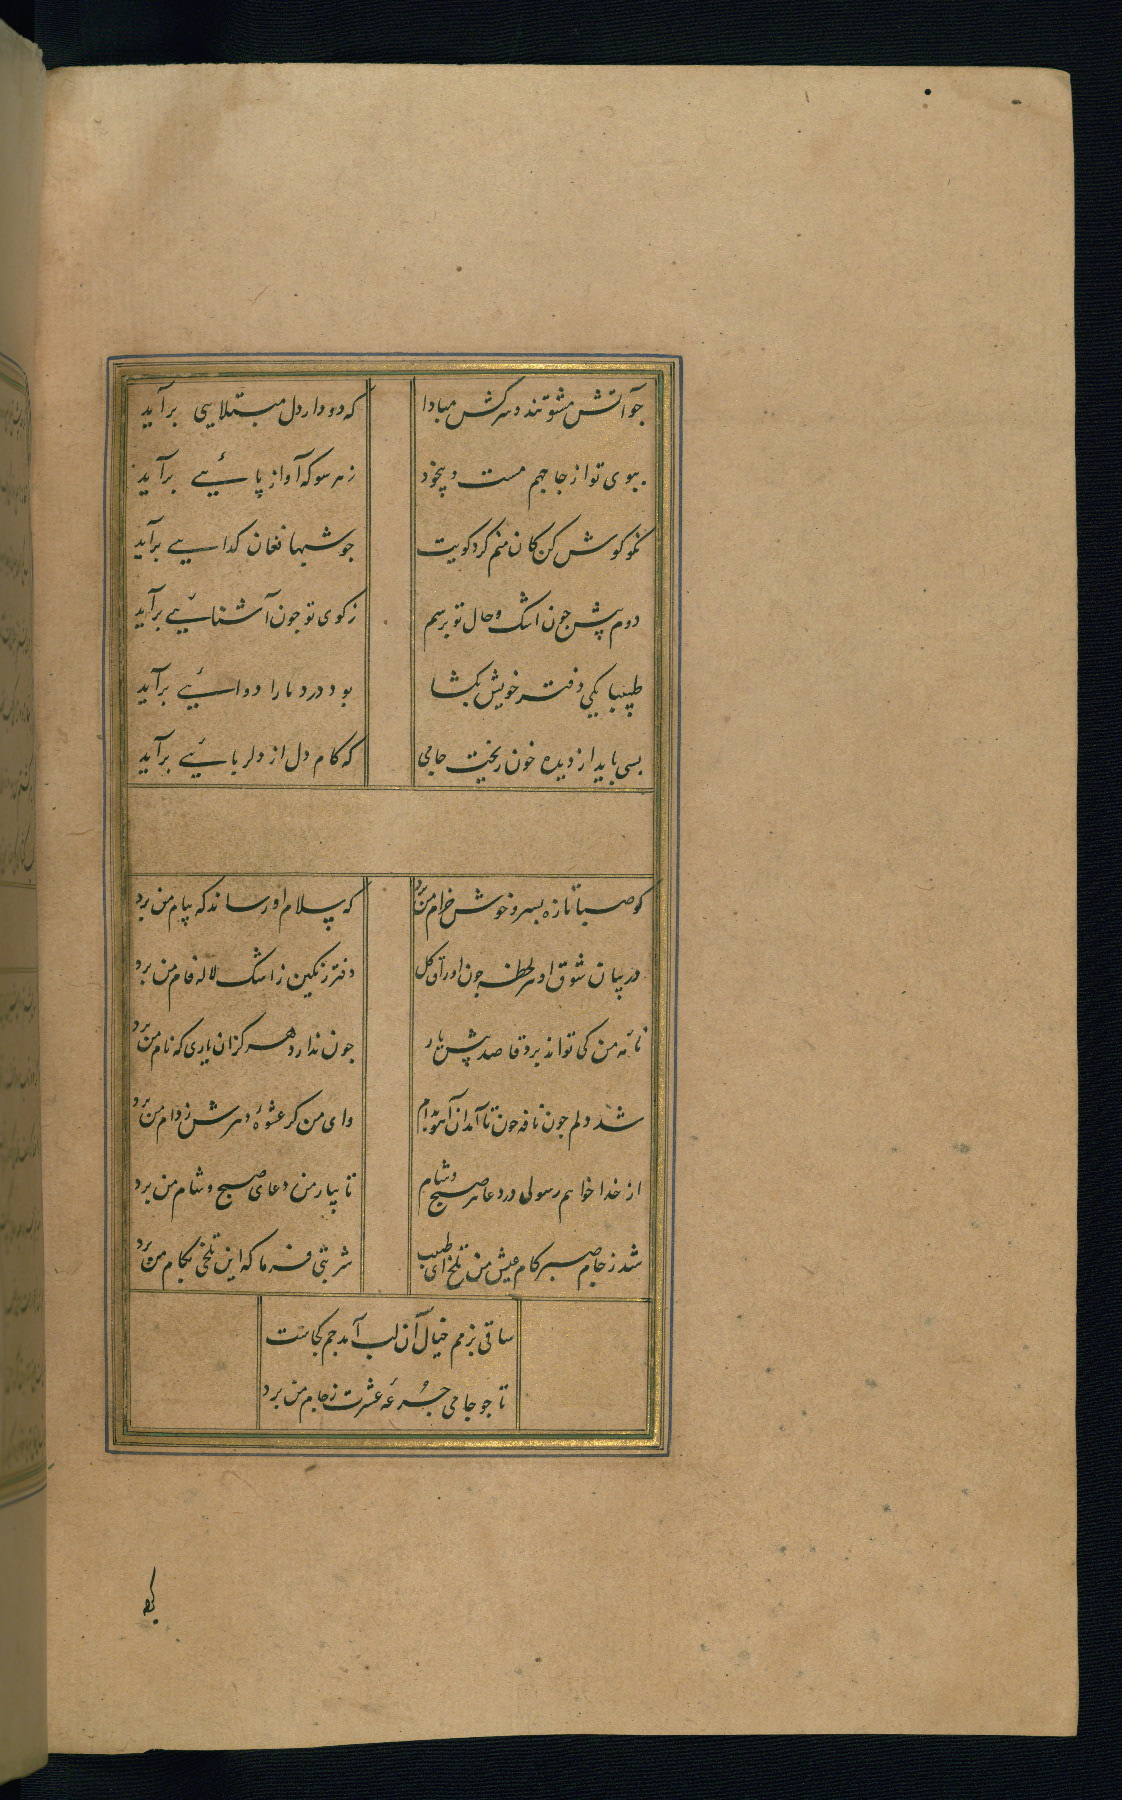 جو آتش مشو تند و سرکش مبادا که دود از دل مبتلایی برآید
ببوی تو از جا جهم مست و بیخود ز هر سو که آواز پائیی برآید
نکو کوش کن کان منم کرد کویت جو شبها فغان کدایی برآید
دوم پیش جون اشک و حال تو برسم ز کوی تو جون آشنائیی برآید
طبیبا یکی دفتر خویش بکشا بود درد ما را دوائیی برآید
بسی باید از دیده خون ریخت جامی که کام دل از دلربائیی برآید
کو صبا تا ره بسرو خوش خرام من برد که سلام او رساند که پیام من برد
در بیان شوق او هر لحظه جون اوراق کل دفتر رنکین ز اشک لاله فام من برد
نامه من کی تواند برد قاصد پیش یار جون ندارد هرکز آن یاری که نام من برد
شد دلم جون نافه خون تا آمد آن آهو بدام وای من کر عشوه دهرش ز دام من برد
از خدا خواهم رسولی در دعا هر صبح و شام تا بیار من دعای صبح و شام من برد
شد ز جام صبر کام عیش من تلخ ای طبیب شربتی فرما که این تلخی ز کام من برد
ساقی بزمم خیال آن لب آمد جم کجاست
تا جو جامی جرعه عشرت ز جام من برد